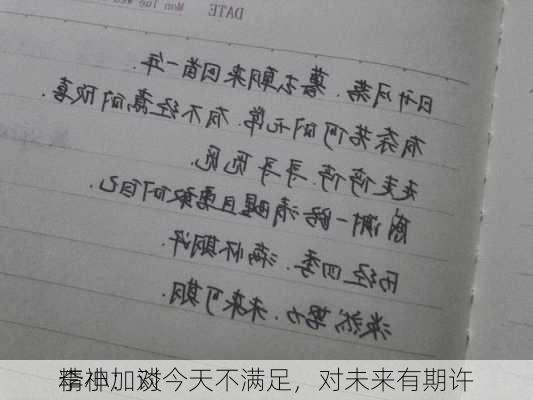 Mon Tue Wed
DATE
日升月落，暮去朝来回首一年.
有奈若何的无常，有不经意间的欣喜.
走走停停，寻寻觅觅
感谢一路清醒且勇敢的自己.
历经四季，满怀期许.
淡然努力，未来可期.
今天不满足，对未来有期许